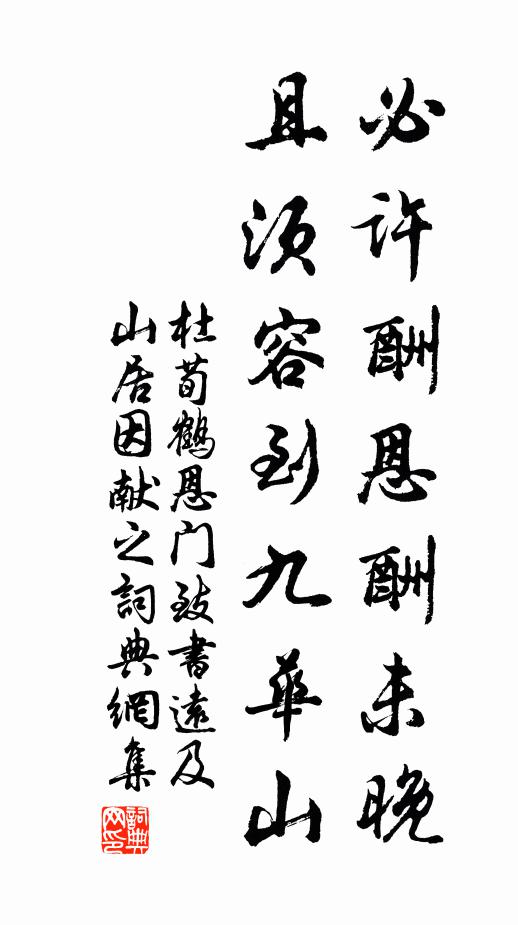 必许酬恩酬未晚
且须容到九华山
杜荀鹤恩门致书远及
山居因献之詞典網集
詞典
网印